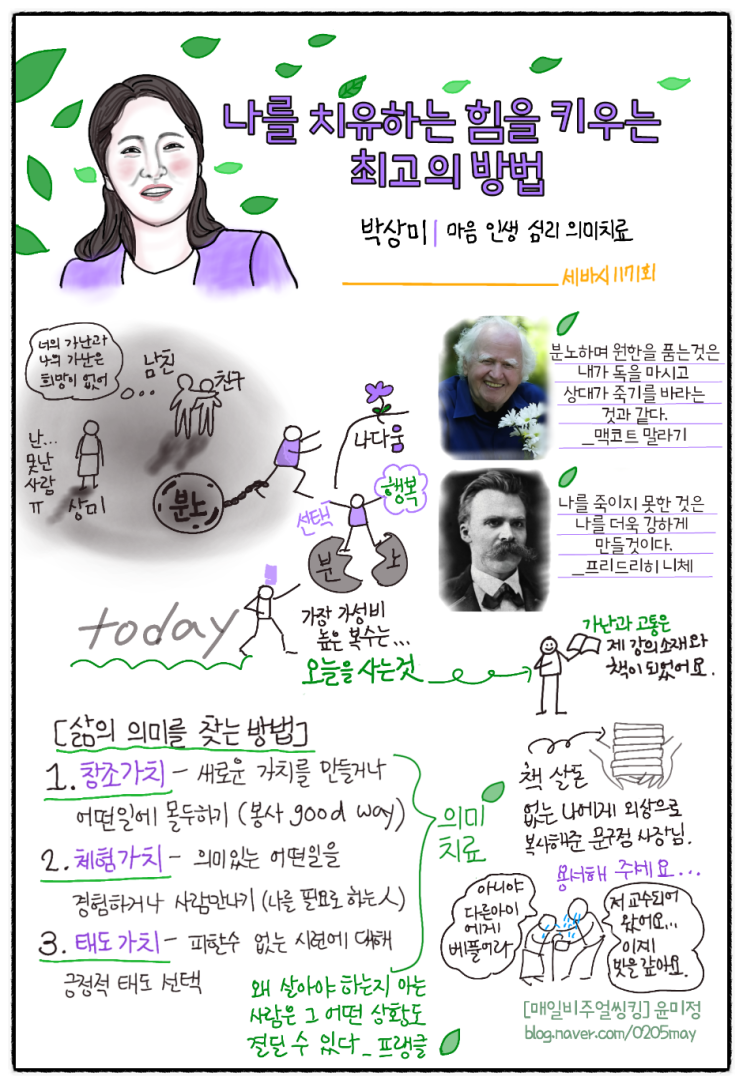 나를 치유하는 힘을 키우는
최고의 방법
박상미| 마음 인생 심리 의미치료
세바시 1171회
너의 가난과
나의 가난은
희망이 없어
남친
친구
난...
못난
사람
ㅠ
상미
분노
나다움
선택
행복
분 노
today
가장 가성비
높은 복수는...
오늘을 사는것
분노하며 원한을 품는것은
내가 독을 마시고
상대가 죽기를 바라는
것과 같다.
_맥코트 말라기
나를 죽이지 못한 것은
나를 더욱 강하게
만들것이다.
_프리드리히 니체
가난과 고통은
제 강의소재와
책이 되었어요.
[삶의 의미를 찾는 방법]
1. 창조가치 - 새로운 가치를 만들거나
어떤일에 몰두하기 (봉사 good way)
2. 체험가치 - 의미있는 어떤일을
경험하거나 사람만나기 (나를 필요로 하는人)
3. 태도가치 - 피할수 없는 시련에 대해
긍정적 태도 선택
의미
치료
왜 살아야 하는지 아는
사람은 그 어떤 상황도
견딜 수 있다_프랭클
책 살돈
없는 나에게 외상으로
복사해준 문구점 사장님.
용서해 주세요...
아니야
다른아이
에게
베풀어라
저 교수되어
왔어요...
이제
빚을 갚아요.
[매일비주얼씽킹] 윤미정
blog.naver.com/0205may